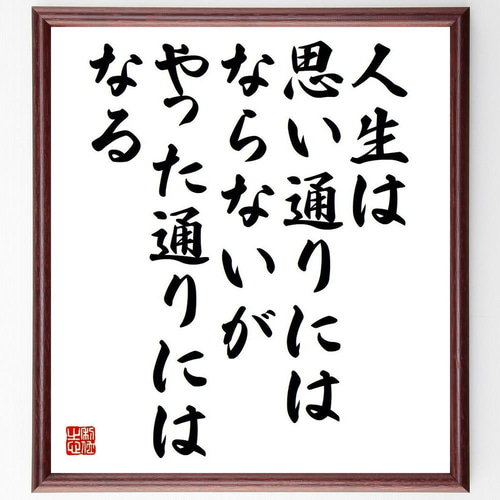 人生は
思い通りには
ならないが
やった通りには
なる